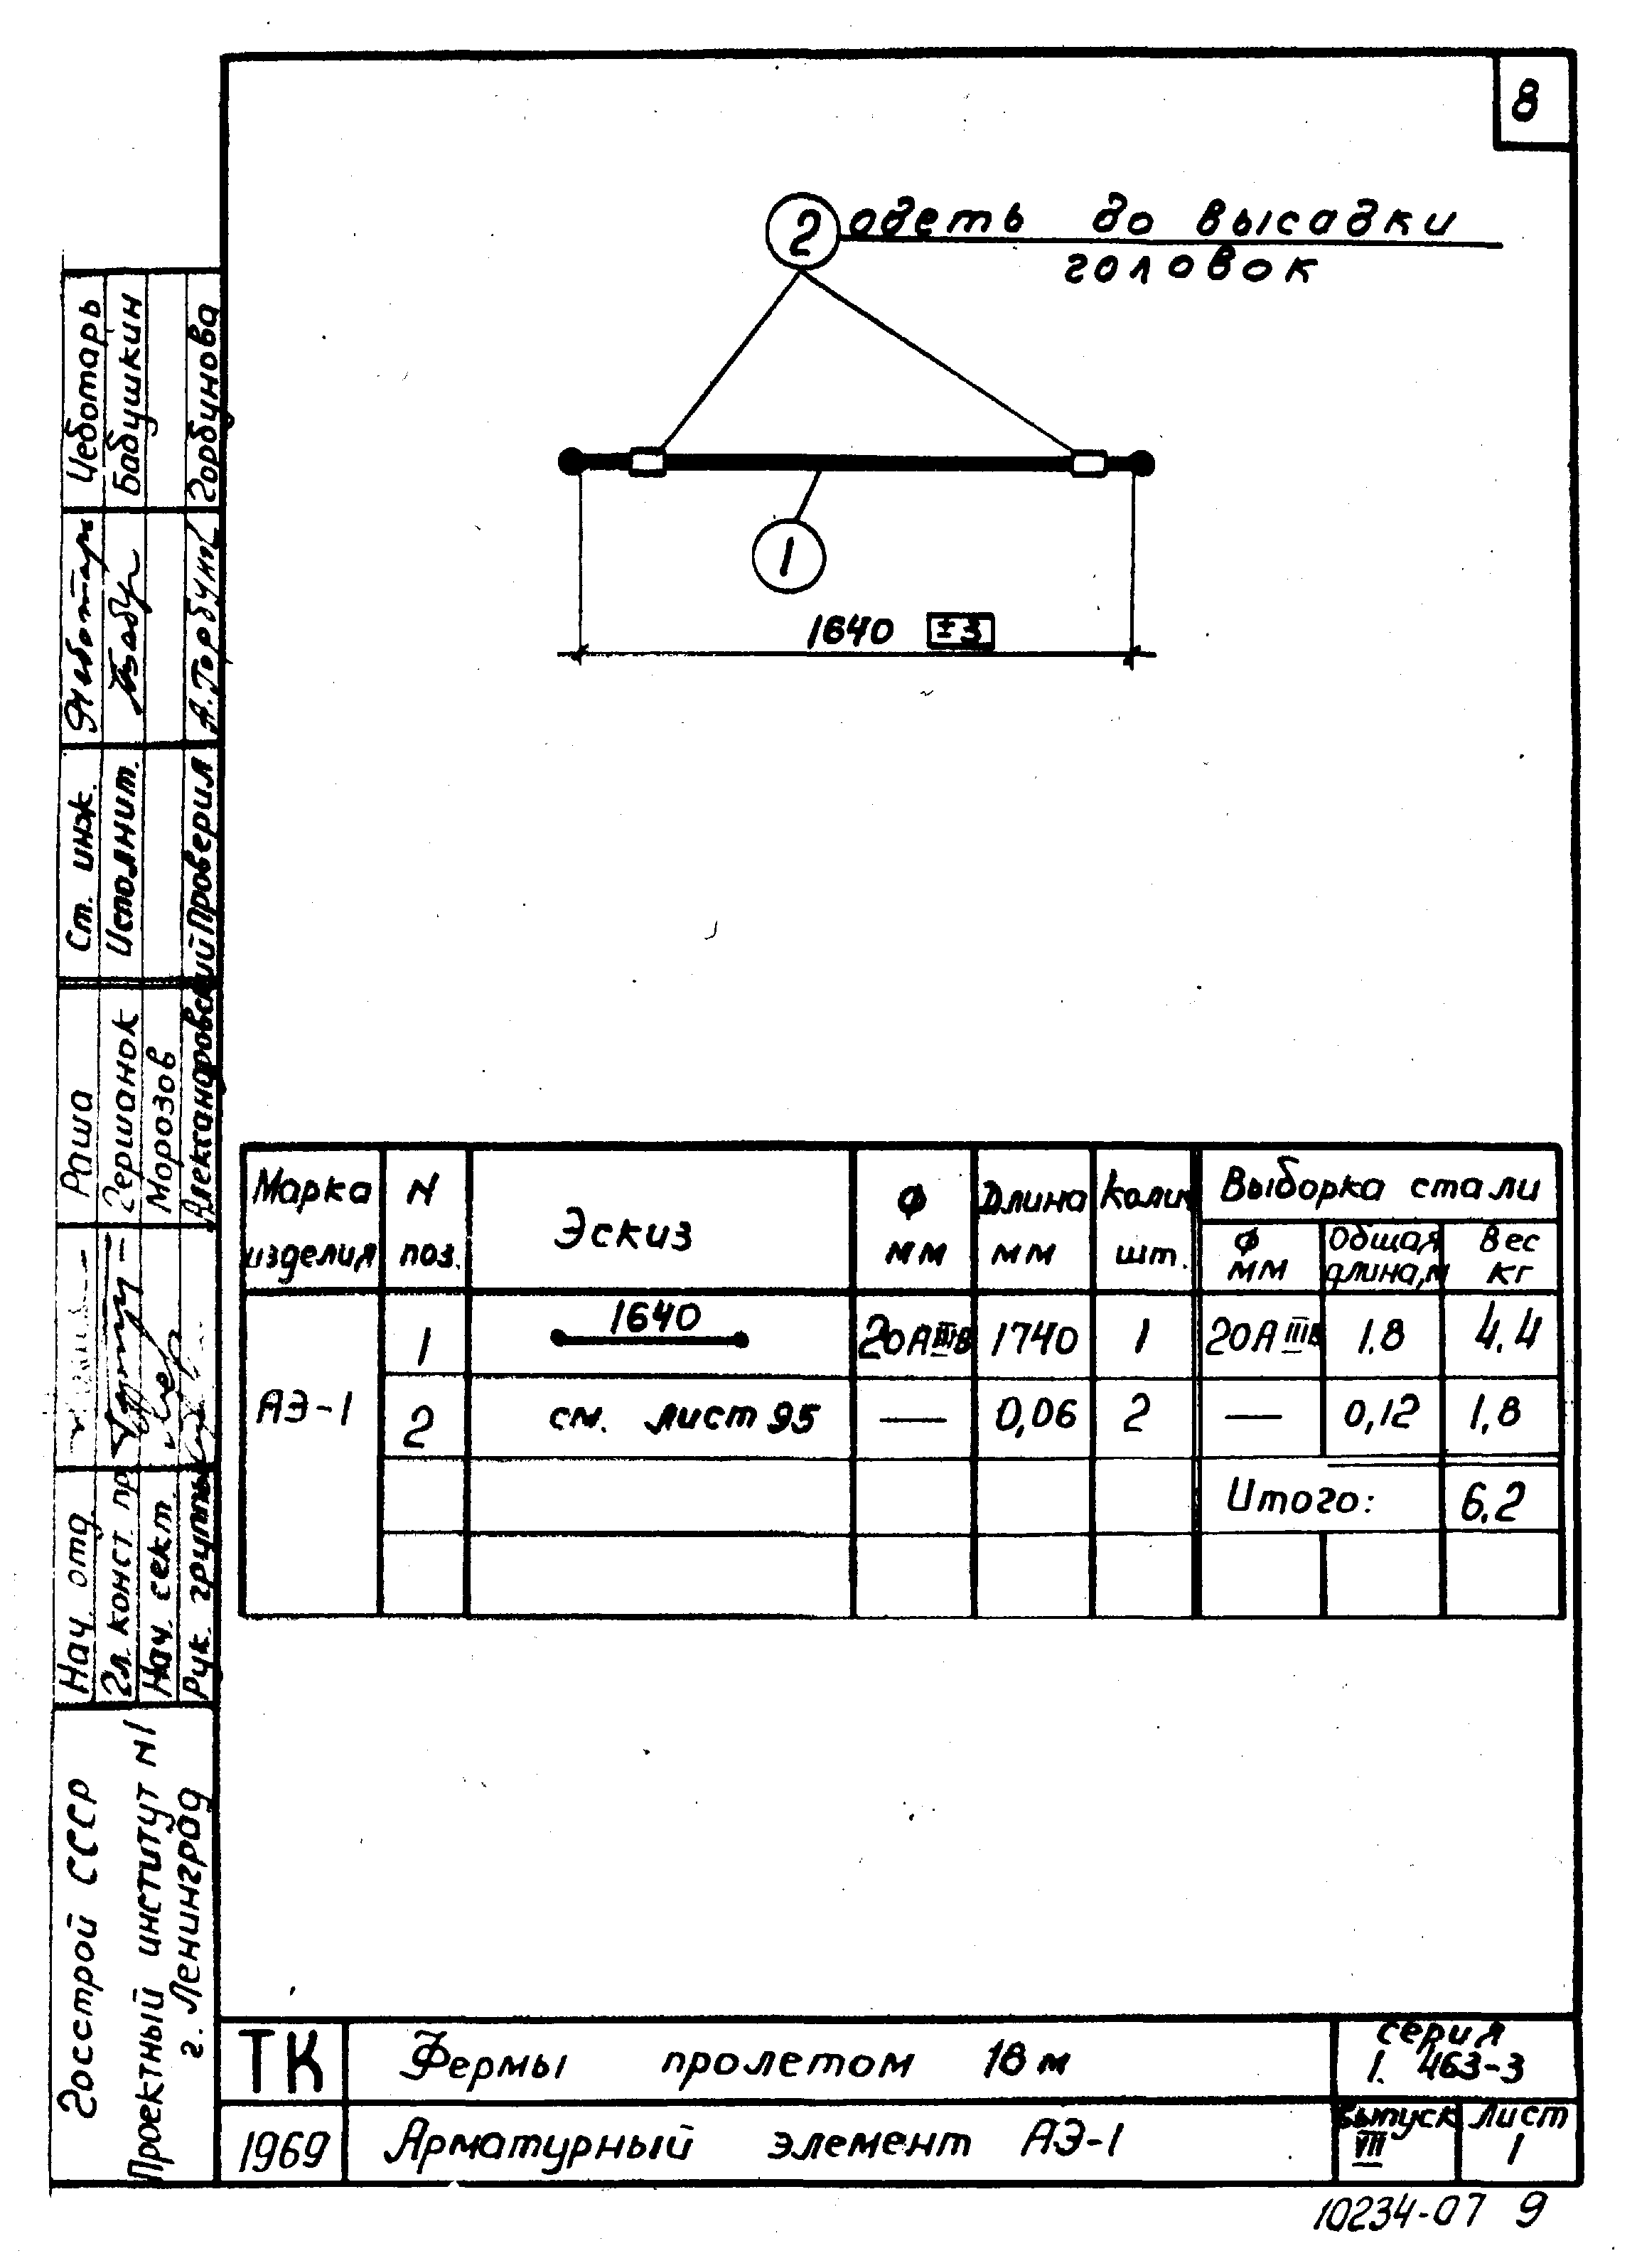 8
2 одеть до высадки
головок
1
1640 ±3
Марка изделия
N поз.
Эскиз
Ф мм
Длина мм
Колич. шт.
Выборка стали
Ф мм
Общая длина, м
Вес кг
АЭ-1
1 1640 20АIIIв 1740 1 20АIIIв 1.8 4.4
2 см. лист 95 — 0,06 2 — 0,12 1,8
Итого: 6.2
Госстрой СССР
Проектный институт N1
г. Ленинград
Нач. отд. Раша Ст. инж. Чеботарь
Гл. конст. пр. Гершанок Исполнит. Бабушкин
Нач. сект. Морозов
Рук. группы Александровский Проверил А.Горбун Горбунова
ТК Фермы пролетом 18м серия
1. 463-3
1969 Арматурный элемент АЭ-1 выпуск VIII лист 1
10234-07 9